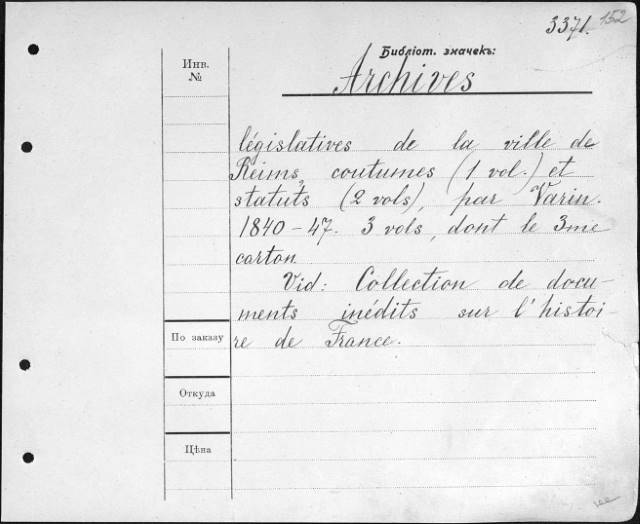 3371. 152
Библіот. значекъ:
Инв.
№
Archives
législatives de la ville de
Reims, coutumes (1 vol.) et
statuts (2 vols), par Varin.
1840-47. 3 vols, dont le 3me
carton.
Vid: Collection de docu-
ments inédits sur l'histoi-
По заказу
re de France.
Откуда
Цѣна